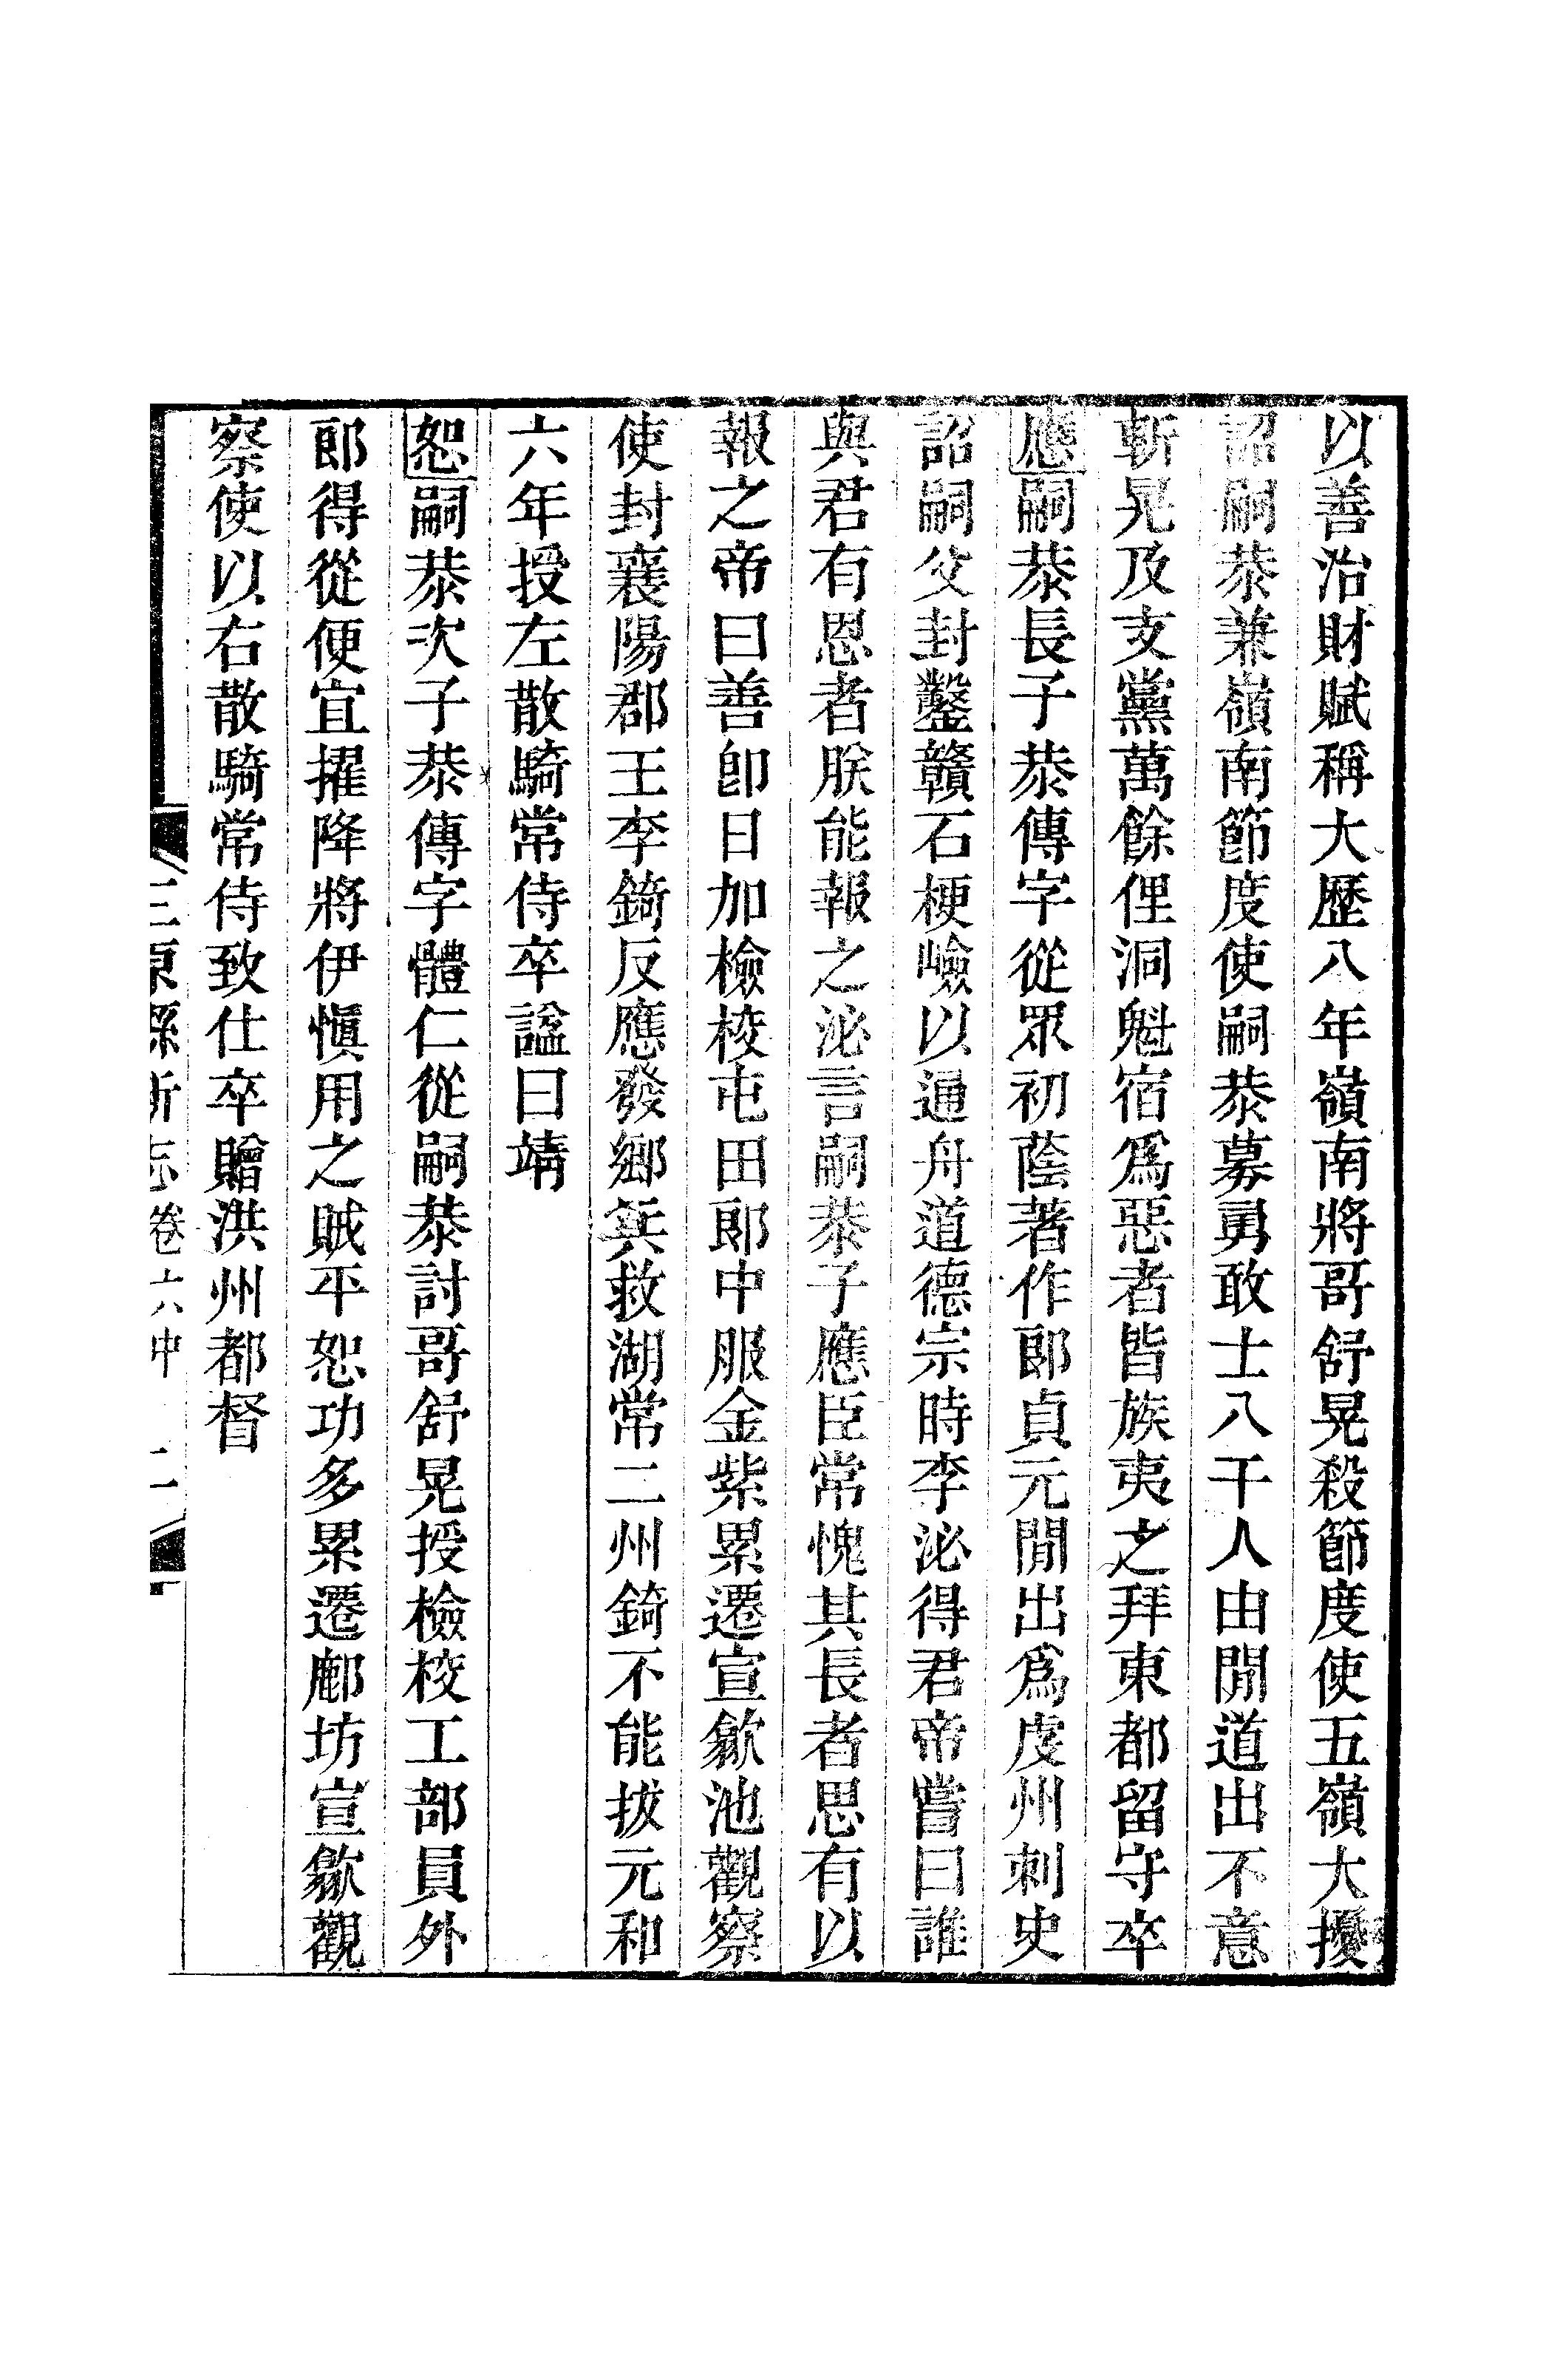 以善治財賦稱大歷八年嶺南將哥舒晃殺節度使五嶺大擾
詔嗣恭兼嶺南節度使嗣恭募勇敢士八千人由閒道出不意
斬晃及支黨萬餘俚洞魁宿爲惡者皆族夷之拜東都留守卒
應嗣恭長子恭傳字從眾初蔭著作郎貞元閒出爲虔州刺史
詔嗣父封鑿贛石梗嶮以通舟道德宗時李泌得君帝嘗曰誰
與君有恩者朕能報之泌言嗣恭子應臣常愧其長者思有以
報之帝曰善卽日加檢校屯田郎中服金紫累遷宣歙池觀察
使封襄陽郡王李錡反應發鄉兵救湖常二州錡不能拔元和
六年授左散騎常侍卒諡曰靖
恕嗣恭次子恭傳字體仁從嗣恭討哥舒晃授檢校工部員外
郎得從便宜擢降將伊愼用之賊平恕功多累遷鄜坊宣歙觀
察使以右散騎常侍致仕卒贈洪州都督
三原縣新志卷六中 二